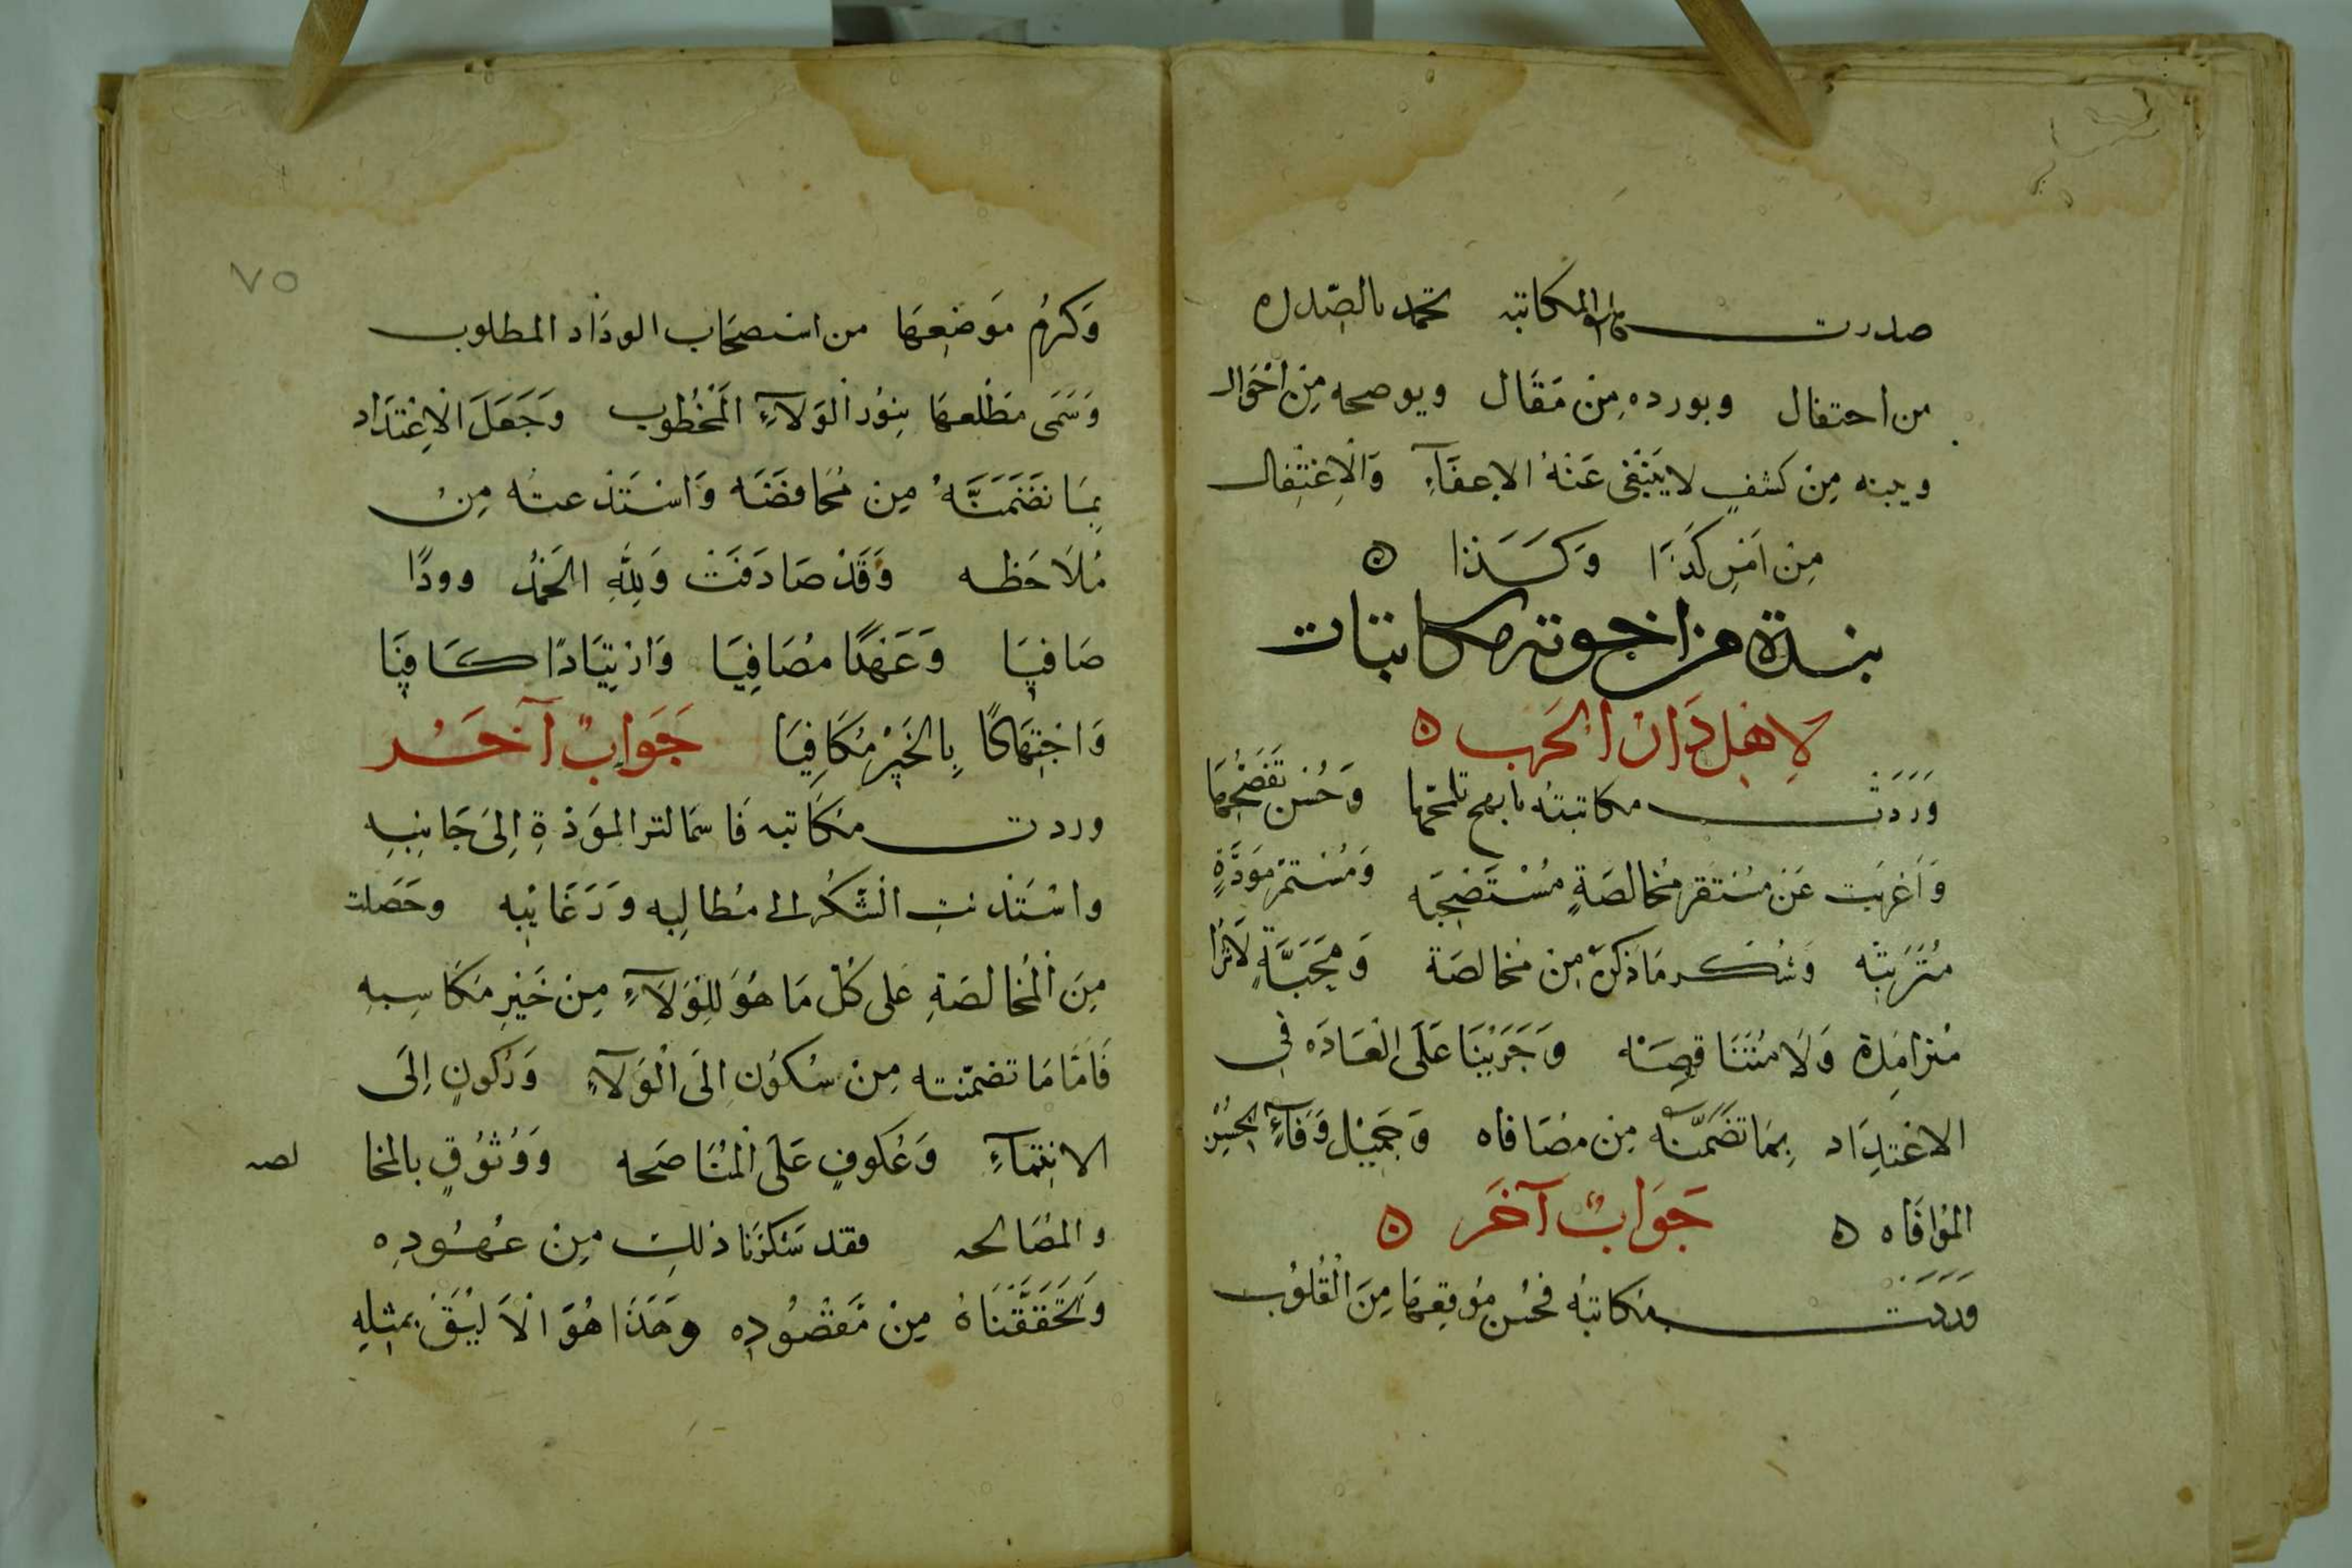 صدرت هذه المكاتبة تحمد بالصدر
من احتفال ويورده من مَقَال ويوضحه مِن اَحْوال
ويبنه مِنْ كشفٍ لا يَنْبَغى عَنْهُ الاعفَآءِ وَالْاِغْتِفال
مِن اَمْرِ كَذَا وَكَسَذا ه
نبذة من اجوبة مكاتبات
لِاهْلِ دَار الحَرب ه
وَرَدَتْ مكاتبته وَحُسْن
وَاَعْربت عَن مسْتَقر مُخالصَةٍ وَمُسْتمر مَوَدَّةٍ
مُتَرَتبَه وَشكر مَا ذكرَهُ مِنْ مخالصَة وَمَحَبَّةٍ
وَجَرَيْنَا عَلَى الْعَادَه في
الاعْتِدَاد بِمَا تَضَمَّنَتْه مِن مصَافاه وَجَمِيْل وَفَآءٍ
المُوَافَاه ه جَوَابٌ آخَر ه
وَرَدَت مكاتبتُه فحُسْن مَوْقِعهَا مِنَ الْقُلُوب
٧٥
وَكرُمَ مَوضِعهَا من استصحَاب الودَاد المطلوب
وَسَمَى مَطْلعهَا بِنوْر الْوَلآءِ الْمَخْطُوب وَجَعَلَ الْاِعْتدَاد
بِمَا تَضَمَنَتَهُ مِن مُحَافضَه وَاسْتَدْعته مِنْ
مُلَاحَظه وَقَدْ صَادَفَتْ وَلِلّهِ الحَمْدُ وودًا
صَافيَا وَعَهْدًا مصَافِيَا وَارْتِيَادًا كَافِيَا
وَاجْتِهَادًا بِالخَيْرِ مكَافِيَا جَوابٌ آخَر
وردت مكَاتبه فَاسْمَالت المَوَدَةِ اِلىَ جَانِبِه
وَاسْتَدْنتِ الشكُر الى مطَالِبِه وَرَغَائِبه وحَصَلت
مِنَ الْمُخالصَةِ عَلى كُل مَا هُوَ لِلْوَلَآءِ مِنْ خَيْرِ مَكَاسِبهِ
فَاَمَّا مَا تضمّنته مِنْ سُكوُنٍ الَى الْوَلآءِ وَرُكونٍ اِلَى
الانْتِمآءِ وَعُكوفٍ عَلَى الْمُنَاصَحه وَوُثوُقٍ بالمخا لصه
والمصَالحه فقد شَكَرْنَا ذلِك مِنْ عُهُودِه
وَتَحَقَقْنَاهُ مِنْ مَقْصُودِه وهَذَا هُوَ الْاَليَقُ بمثلِهِ